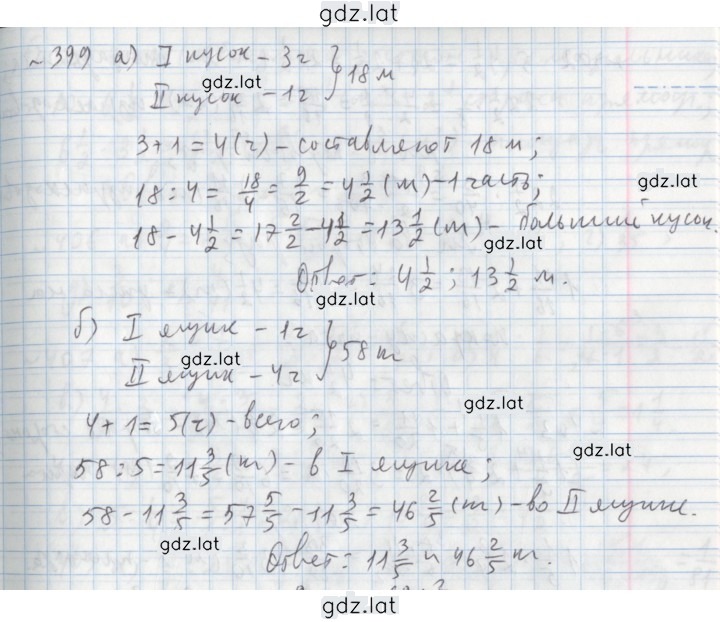 gdz.lat
№ 399 а) I кусок – 3ч
gdz.lat
II кусок – 1ч } 18 м
3 + 1 = 4 (ч) – составляют 18 м;
18 : 4 = 18/4 = 9/2 = 4 1/2 (м) – 1 часть;
gdz.lat
18 – 4 1/2 = 17 2/2 – 4 1/2 = 13 1/2 (м) – больший кусок.
gdz.lat
Ответ: 4 1/2 ; 13 1/2 м.
gdz.lat
б) I ящик – 1ч
gdz.lat
II ящик – 4ч } 58 т
gdz.lat
4 + 1 = 5 (ч) – всего;
gdz.lat
58 : 5 = 11 3/5 (т) – в I ящике;
58 – 11 3/5 = 57 5/5 – 11 3/5 = 46 2/5 (т) – во II ящике.
gdz.lat
Ответ: 11 3/5 и 46 2/5 т.
gdz.lat